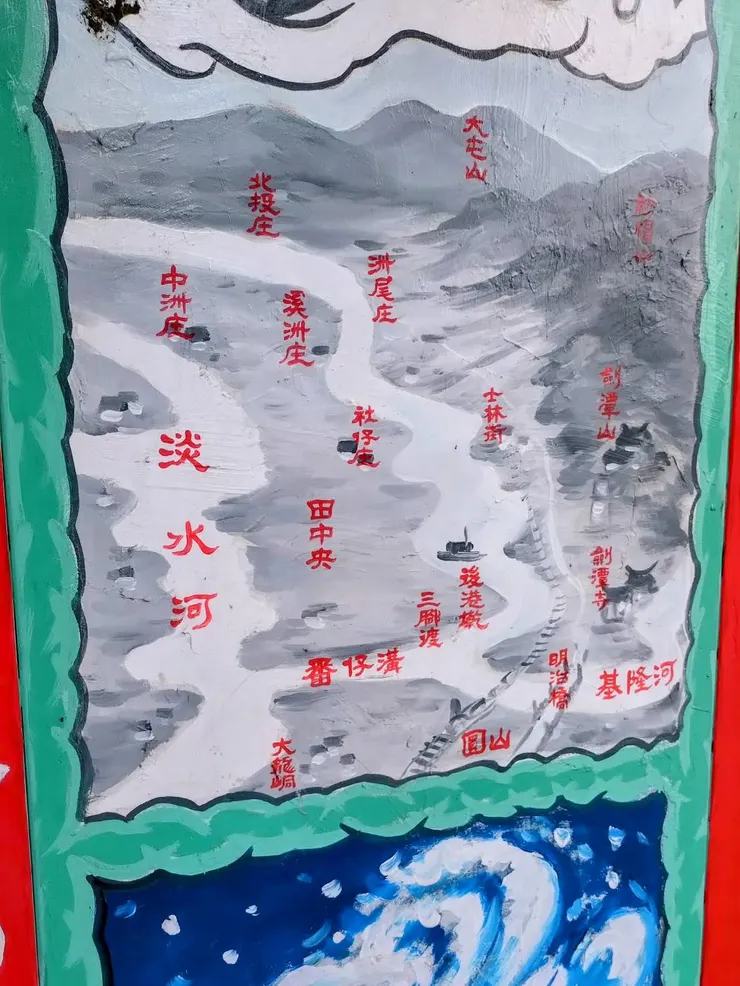 大屯山
北投庄
洲尾庄
中洲庄
溪洲庄
劍潭山
士林街
社仔庄
淡水河
田中央
劍潭寺
後港墘
三腳渡
番仔溝
明治橋
基隆河
圓山
大龍峒